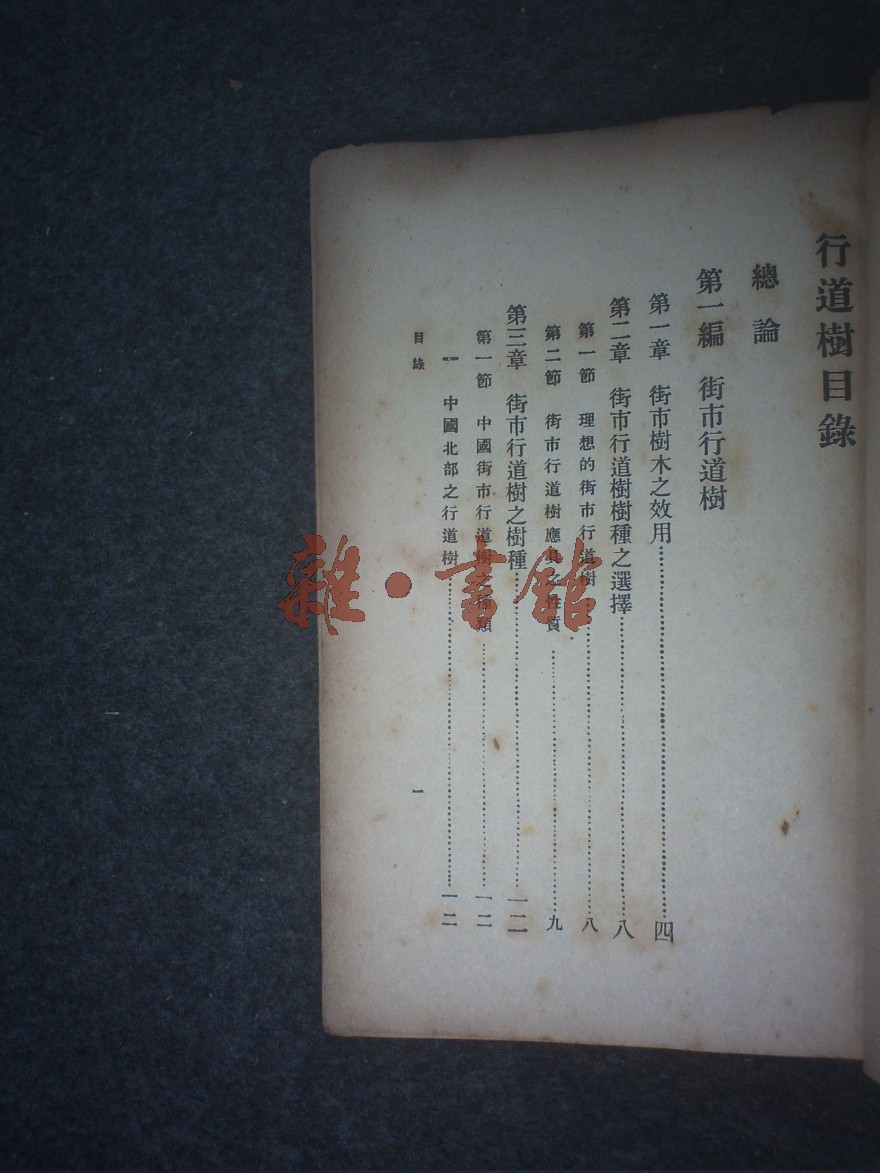 行道樹目錄
總論
第一編 街市行道樹
第一章 街市樹木之效用……四
第二章 街市行道樹樹種之選擇……八
第一節 理想的街市行道樹……八
第二節 街市行道樹應具之性質……九
第三章 街市行道樹之樹種……一二
第一節 中國街市行道樹之種類……一二
一 中國北部之行道樹……一二
目錄
一
雜·書館